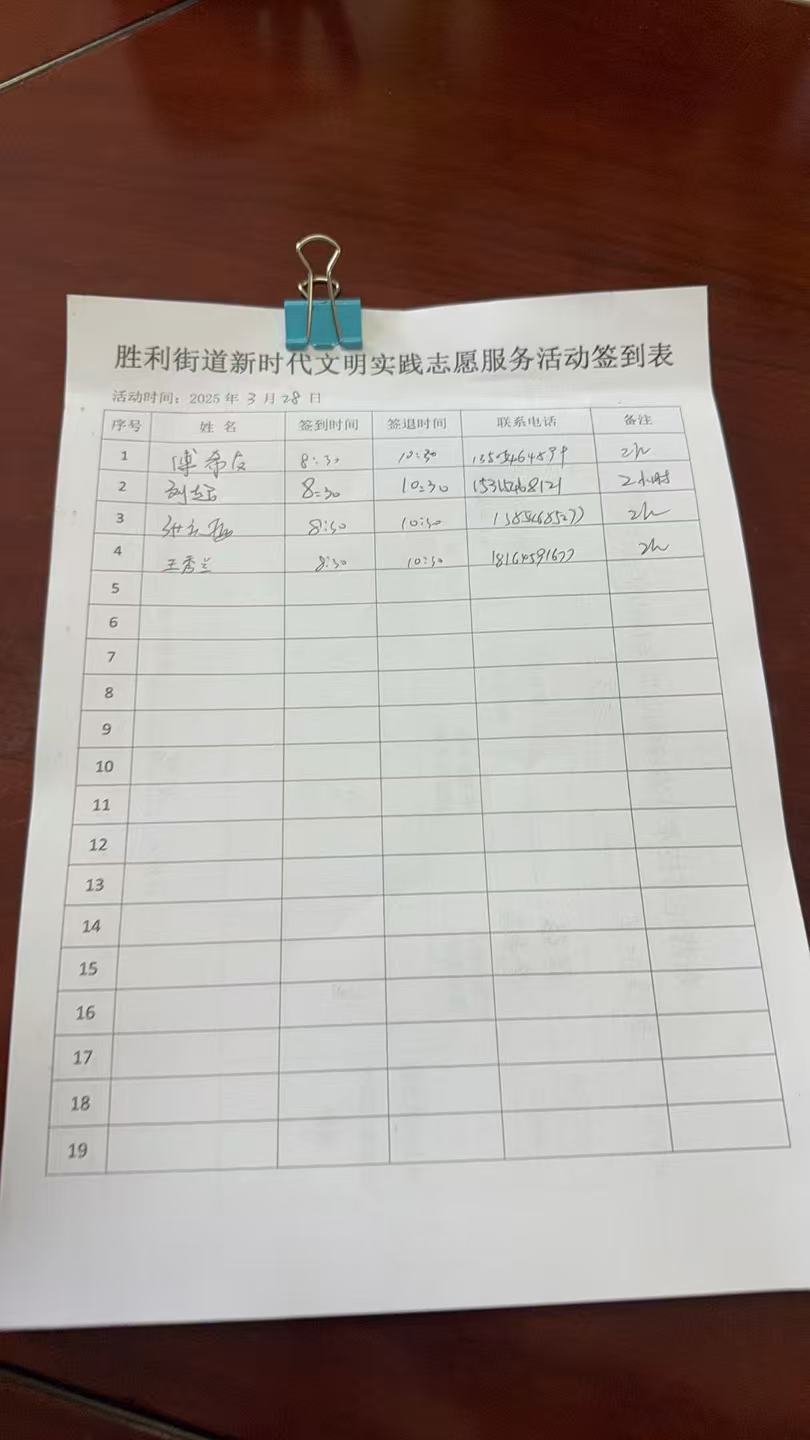 胜利街道新时代文明实践志愿服务活动签到表
活动时间：2025 年 3 月 28 日
序号 姓 名 签到时间 签退时间 联系电话 备注
1 傅希友 8:30 10:30 2h
2 8:30 10:30 2小时
3 8:30 10:30 2h
4 王秀兰 8:30 10:30 18164591677 2h
5
6
7
8
9
10
11
12
13
14
15
16
17
18
19